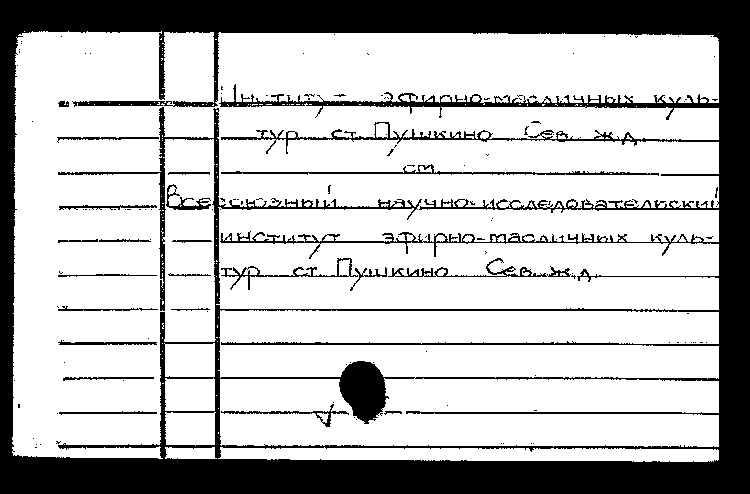 Институт эфирно-масличных куль-
тур ст. Пушкино Сев. ж.д.
см.
Всесоюзный научно-исследовательский
институт эфирно-масличных куль-
тур ст. Пушкино Сев. ж.д.